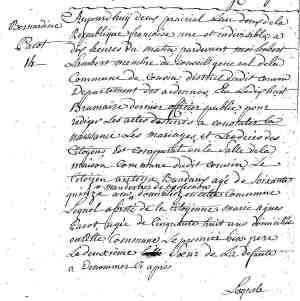 Bernardine
Pacot
14
Aujourd'huy deux prairial l'an deux de la
République françoise une et indivisible à
dix heures du matin pardevant moi
Lambert membre du Conseil général de la
Commune de Couvin district dudit Couvin
Departement des ardennes, Elu Ledit
dernier officier public pour
rédiger Les actes destinés à constater la
naissance Les mariages, et Les décès des
Citoyens Est comparut en la salle de la
maison Commune dudit Couvin, Le
Citoyen agé de soixante
ans, domicilié en cette Commune
Lequel assisté de la Citoyenne marie agnes
Pacot, agée de Cinquante huit ans domiciliée
en cette Commune Le premier
Le deuxieme sœur de La defunte
a Denommer cy après
Laquelle